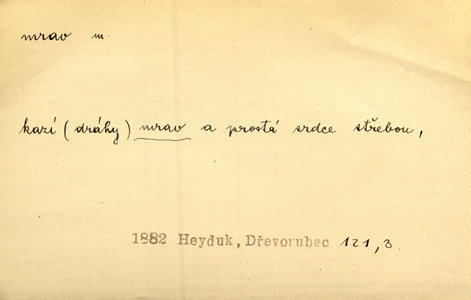 mrav m.
kazí (dráhy) mrav a prostá srdce střebou,
1882 Heyduk, Dřevorubec 121,3.